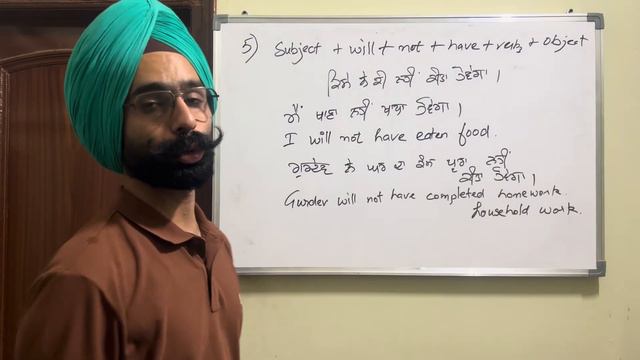 5) Subject + will + not + have + verb3 + Object
ਕਿਸੇ ਨੇ ਵੀ ਨਹੀਂ ਕੀਤਾ ਹੋਵੇਗਾ ।
ਮੈਂ ਖਾਣਾ ਨਹੀਂ ਖਾਧਾ ਹੋਵੇਗਾ ।
I will not have eaten food.
ਗੁਰਦੇਵ ਨੇ ਘਰ ਦਾ ਕੰਮ ਪੂਰਾ ਨਹੀਂ
ਕੀਤਾ ਹੋਵੇਗਾ ।
will not have completed homework.
household work.